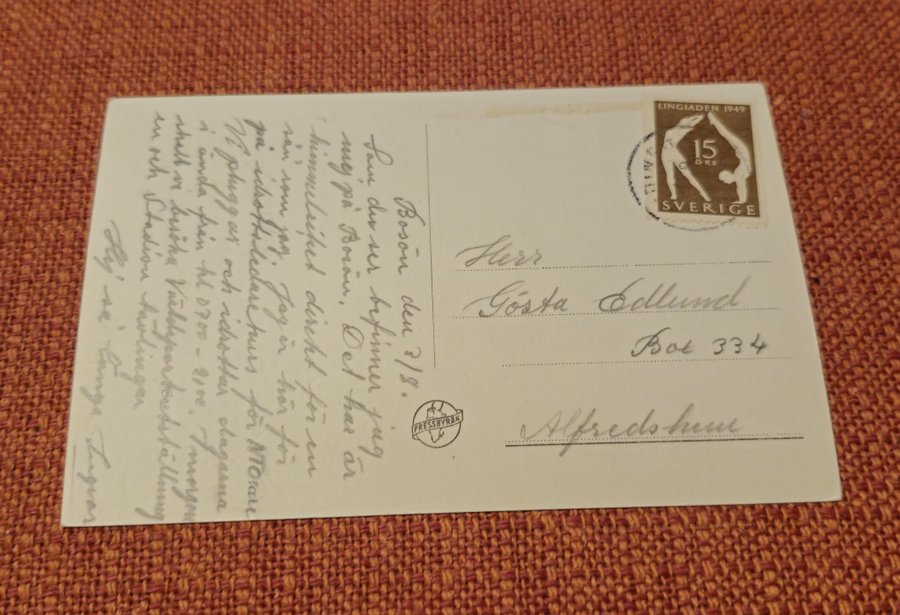 Bosön den 3/8.
Som du ser befinner jag
mig på Bosön. Det här är
himmelriket direkt för en
sån som jag. Jag är här för
på idrottsledarekurs för
Vi pluggar och idrottar dagarna
i ända från kl 0700 - 2100. I morgon
skall vi besöka
en och Stadion tävlingar.
Hej så länge Ingvar
LINGIADEN 1949
15
ÖRE
SVERIGE
Herr
Gösta Edlund
Box 334
Alfredshem
PRESSBYRÅN